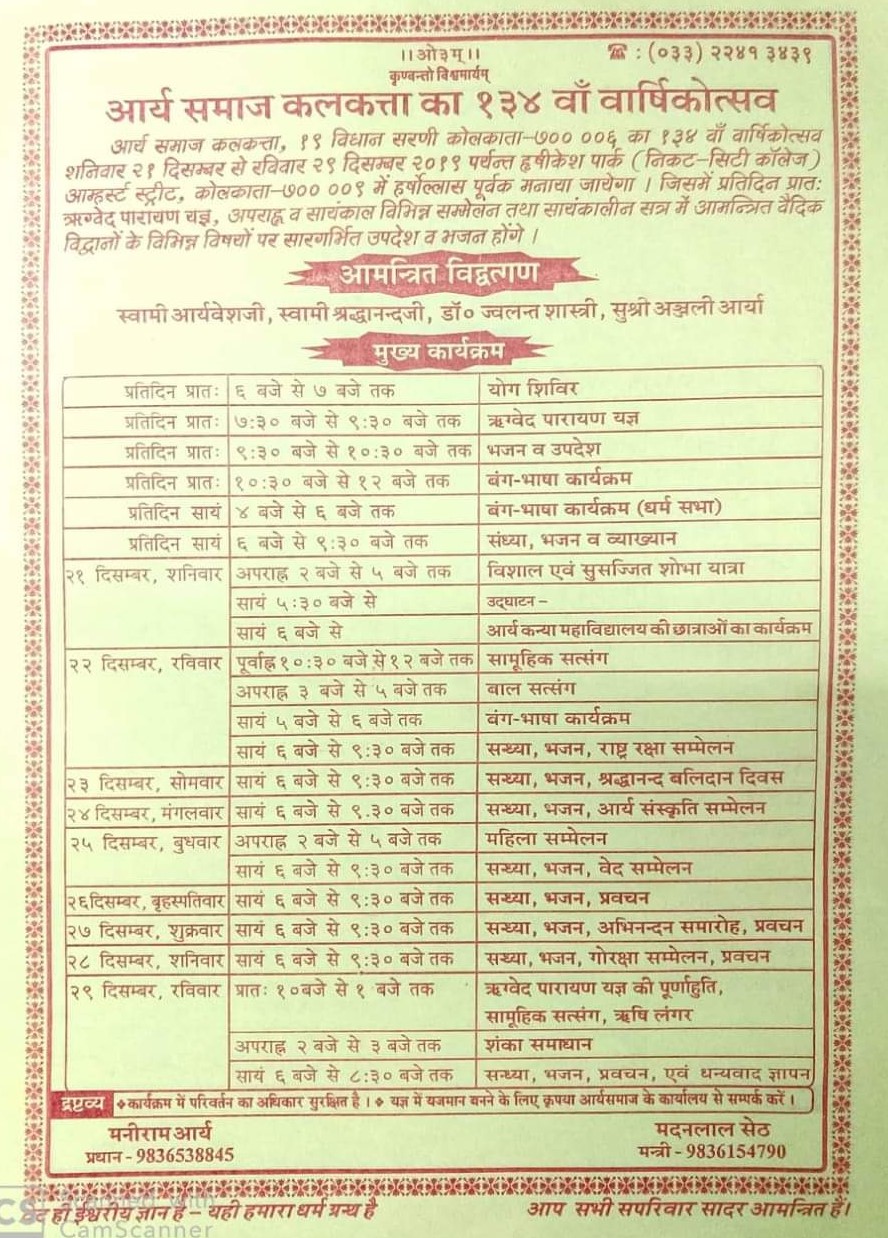 ।।ओ३म्।।
☎ : (०३३) २२४१ ३४३९
कृण्वन्तो विश्वमार्यम्
आर्य समाज कलकत्ता का १३४ वाँ वार्षिकोत्सव
आर्य समाज कलकत्ता, १९ विधान सरणी कोलकाता-७०० ००६ का १३४ वाँ वार्षिकोत्सव
शनिवार २१ दिसम्बर से रविवार २९ दिसम्बर २०१९ पर्यन्त हृषीकेश पार्क (निकट-सिटी कॉलेज)
आम्हर्स्ट स्ट्रीट, कोलकाता-७०० ००९ में हर्षोल्लास पूर्वक मनाया जायेगा । जिसमें प्रतिदिन प्रातः
ऋग्वेद पारायण यज्ञ, अपराह्न व सायंकाल विभिन्न सम्मेलन तथा सायंकालीन सत्र में आमन्त्रित वैदिक
विद्वानों के विभिन्न विषयों पर सारगर्भित उपदेश व भजन होंगे ।
आमन्त्रित विद्वत्गण
स्वामी आर्यवेशजी, स्वामी श्रद्धानन्दजी, डॉ० ज्वलन्त शास्त्री, सुश्री अञ्जली आर्या
मुख्य कार्यक्रम
प्रतिदिन प्रातः ६ बजे से ७ बजे तक योग शिविर
प्रतिदिन प्रातः ७:३० बजे से ९:३० बजे तक ऋग्वेद पारायण यज्ञ
प्रतिदिन प्रातः ९:३० बजे से १०:३० बजे तक भजन व उपदेश
प्रतिदिन प्रातः १०:३० बजे से १२ बजे तक बंग-भाषा कार्यक्रम
प्रतिदिन सायं ४ बजे से ६ बजे तक बंग-भाषा कार्यक्रम (धर्म सभा)
प्रतिदिन सायं ६ बजे से ९:३० बजे तक संध्या, भजन व व्याख्यान
२१ दिसम्बर, शनिवार अपराह्न २ बजे से ५ बजे तक विशाल एवं सुसज्जित शोभा यात्रा
सायं ५:३० बजे से उद्घाटन –
सायं ६ बजे से आर्य कन्या महाविद्यालय की छात्राओं का कार्यक्रम
२२ दिसम्बर, रविवार पूर्वाह्न १०:३० बजे से १२ बजे तक सामूहिक सत्संग
अपराह्न ३ बजे से ५ बजे तक बाल सत्संग
सायं ५ बजे से ६ बजे तक बंग-भाषा कार्यक्रम
सायं ६ बजे से ९:३० बजे तक सन्ध्या, भजन, राष्ट्र रक्षा सम्मेलन
२३ दिसम्बर, सोमवार सायं ६ बजे से ९:३० बजे तक सन्ध्या, भजन, श्रद्धानन्द बलिदान दिवस
२४ दिसम्बर, मंगलवार सायं ६ बजे से ९.३० बजे तक सन्ध्या, भजन, आर्य संस्कृति सम्मेलन
२५ दिसम्बर, बुधवार अपराह्न २ बजे से ५ बजे तक महिला सम्मेलन
सायं ६ बजे से ९:३० बजे तक सन्ध्या, भजन, वेद सम्मेलन
२६ दिसम्बर, बृहस्पतिवार सायं ६ बजे से ९:३० बजे तक सन्ध्या, भजन, प्रवचन
२७ दिसम्बर, शुक्रवार सायं ६ बजे से ९:३० बजे तक सन्ध्या, भजन, अभिनन्दन समारोह, प्रवचन
२८ दिसम्बर, शनिवार सायं ६ बजे से ९:३० बजे तक सन्ध्या, भजन, गोरक्षा सम्मेलन, प्रवचन
२९ दिसम्बर, रविवार प्रातः १० बजे से १ बजे तक ऋग्वेद पारायण यज्ञ की पूर्णाहुति,
सामूहिक सत्संग, ऋषि लंगर
अपराह्न २ बजे से ३ बजे तक शंका समाधान
सायं ६ बजे से ८:३० बजे तक सन्ध्या, भजन, प्रवचन, एवं धन्यवाद ज्ञापन
द्रष्टव्य ❖ कार्यक्रम में परिवर्तन का अधिकार सुरक्षित है । ❖ यज्ञ में यजमान बनने के लिए कृपया आर्यसमाज के कार्यालय से सम्पर्क करें ।
मनीराम आर्य मदनलाल सेठ
प्रधान - 9836538845 मन्त्री - 9836154790
ही ईश्वरीय ज्ञान है – यही हमारा धर्म ग्रन्थ है आप सभी सपरिवार सादर आमन्त्रित हैं।
CS Scanned with
CamScanner